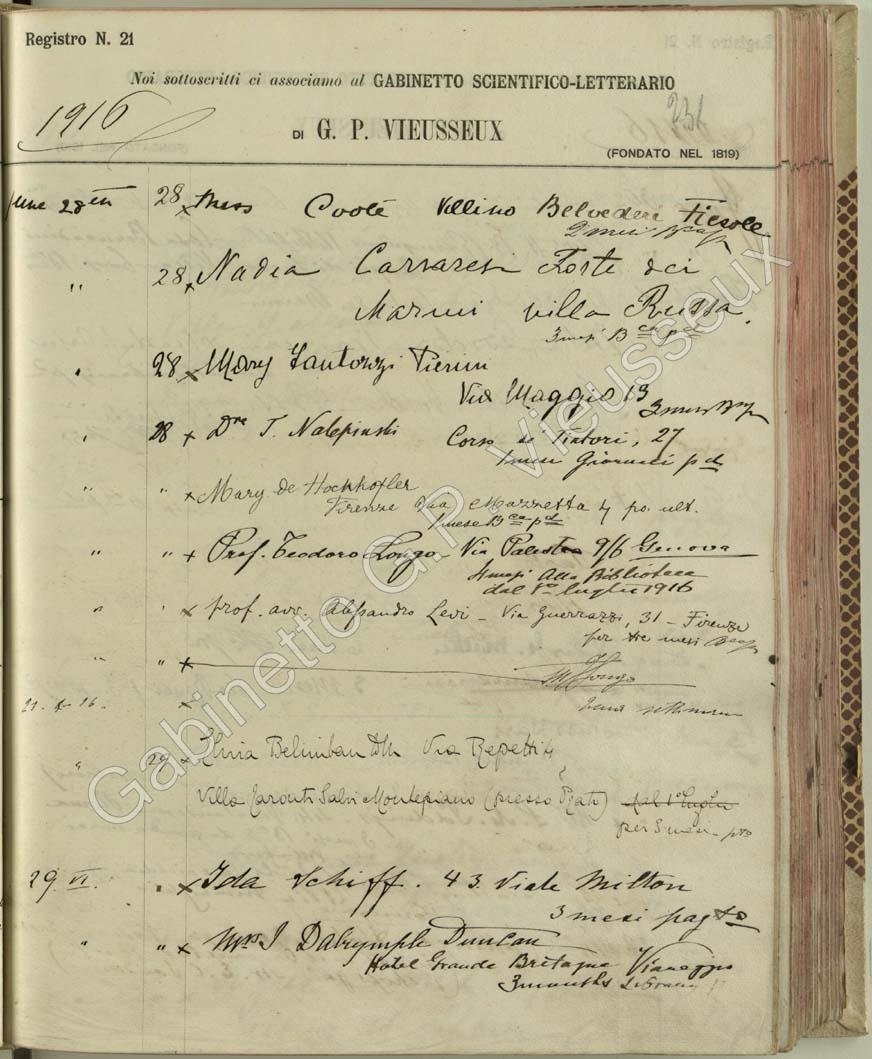 Registro N. 21
Noi sottoscritti ci associamo al GABINETTO SCIENTIFICO-LETTERARIO
1916
231
DI G. P. VIEUSSEUX
(FONDATO NEL 1819)
June 28th 28 x Miss Coote Villino Belvedere Fiesole
2 mesi
" 28 x Nadia Forte dei
Marmi villa Russa.
3 mesi Bca pd
" 28 x Mary Fantozzi Pierini
Via Maggio 13
3 mesi
" 28 x T. Nalepinski Corso de Tintori, 27
1 mese Giornali pd
" " x Mary de Hochkofler
Firenze Via Mazzetta 4 po. ult.
1 mese Bca pd
" " x Prof. Teodoro Longo - Via Palestro 9/6 Genova
alla Biblioteca
dal 1o luglio 1916
" " x prof. avv. Alessandro Levi - Via Guerrazzi, 31 - Firenze
per tre mesi
" " x
Longo
x
" 29 x Via Repetti 4
Villa Salvi Montepiano (presso Prato) dal 1o luglio
per 3 mesi
29 VI. " x Ida Schiff. 43 Viale Milton
3 mesi pagto
" " x Mrs J Dalrymple Duncan
Hotel Grande Bretagne Viareggio
3 months
Gabinetto G.P. Vieusseux